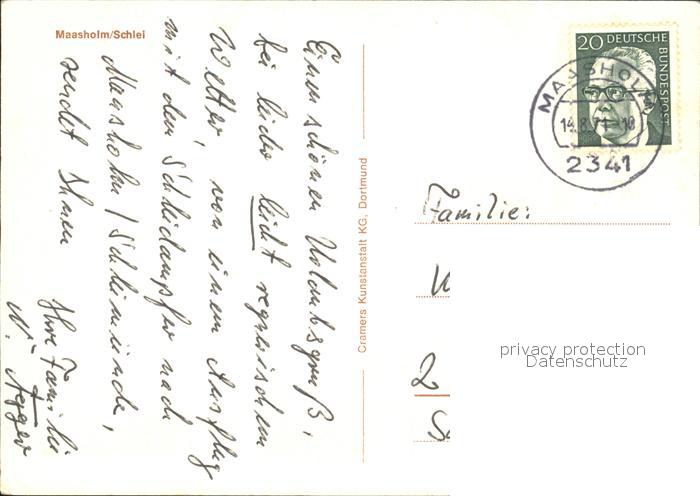 Maasholm/Schlei
Einen schönen Urlaubsgruß,
bei leider leicht regnerischem
Wetter, von einem Ausflug
mit dem Schleidampfer nach
Maasholm / Schleimünde,
sendet Ihnen
Ihre Familie
N.
Cramers Kunstanstalt KG, Dortmund
20 DEUTSCHE BUNDESPOST
MAASHOLM
2341
Familie:
2
privacy protection
Datenschutz